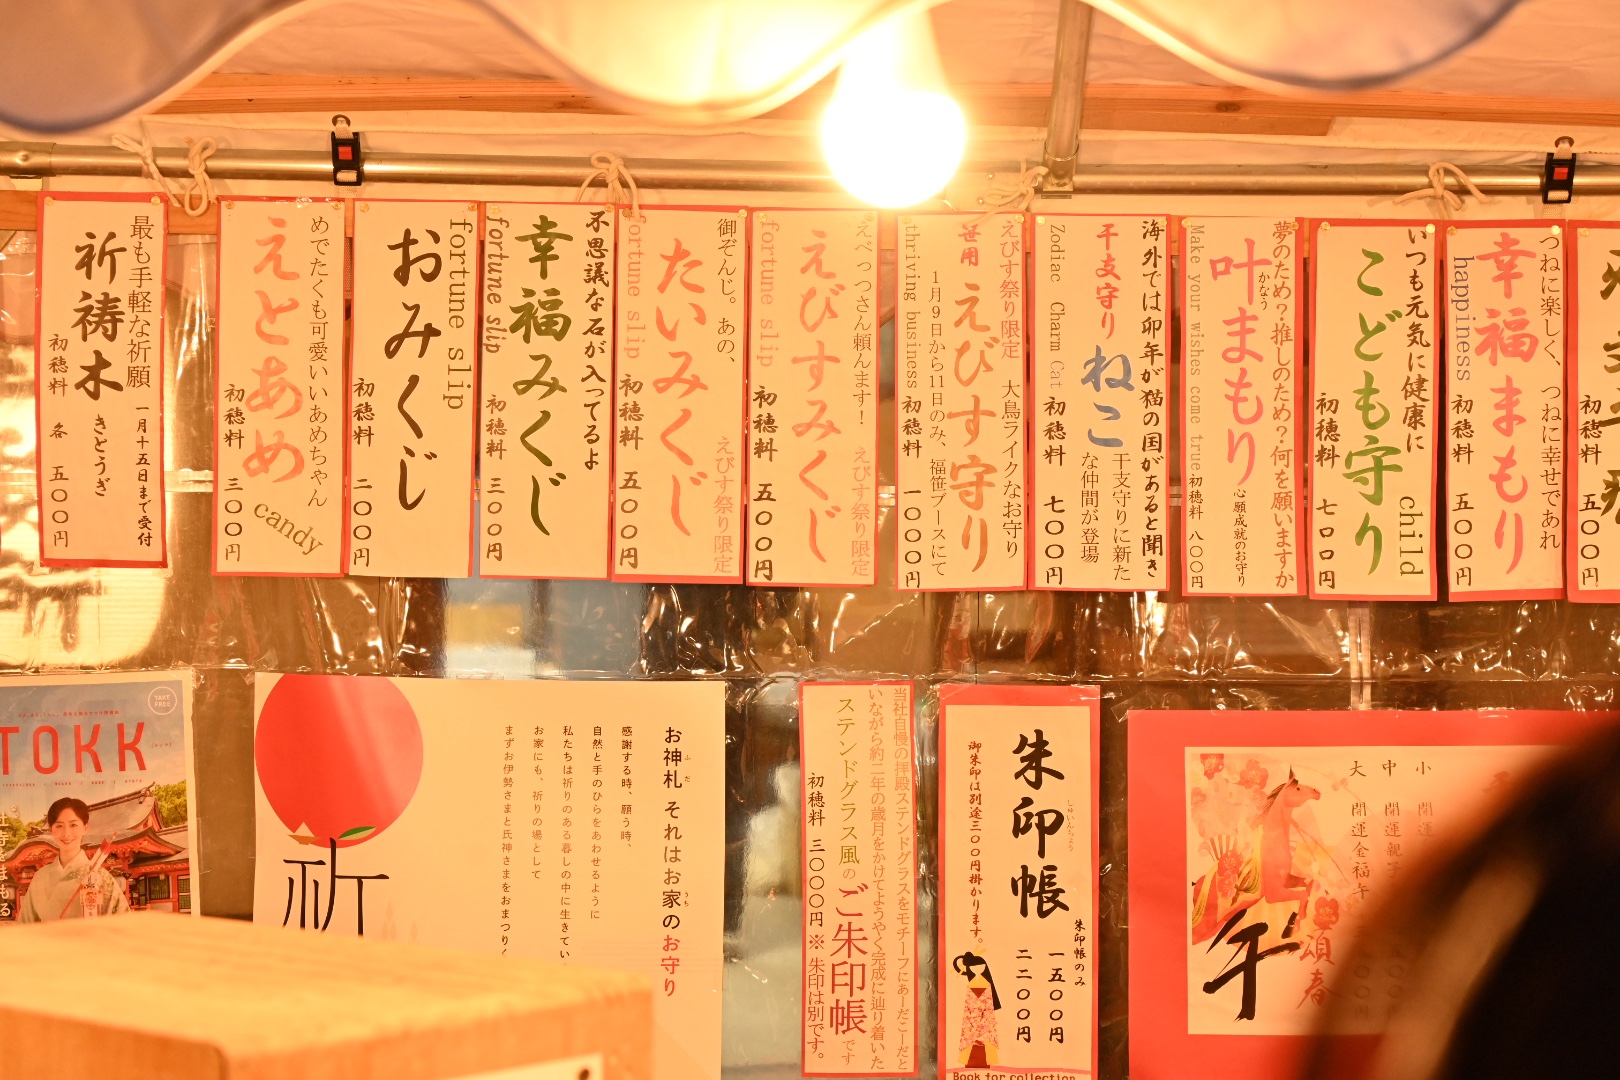 最も手軽な祈願
一月十五日まで受付
祈祷木
きとうぎ
初穂料 各 五〇〇円
めでたくも可愛いいあめちゃん
えとあめ
candy
初穂料 三〇〇円
fortune slip
おみくじ
初穂料 二〇〇円
不思議な石が入ってるよ
幸福みくじ
fortune slip
初穂料 三〇〇円
御ぞんじ。あの、
えびす祭り限定
たいみくじ
fortune slip
初穂料 五〇〇円
えべっつさん頼んます!
えびす祭り限定
えびすみくじ
fortune slip
初穂料 五〇〇円
えびす祭り限定 大鳥ライクなお守り
笹用 えびす守り
1月9日から11日のみ、福笹ブースにて
thriving business
初穂料 一〇〇〇円
海外では卯年が猫の国があると聞き
干支守りに新た
な仲間が登場
干支守り ねこ
Zodiac Charm Cat
初穂料 七〇〇円
夢のため?推しのため?何を願いますか
心願成就のお守り
叶まもり
かなう
Make your wishes come true
初穂料 八〇〇円
いつも元気に健康に
child
こども守り
初穂料 七〇〇円
つねに楽しく、つねに幸せであれ
幸福まもり
happiness
初穂料 五〇〇円
初穂料 五〇〇円
TAKE FREE
TOKK
お神札 それはお家のお守り
ふだ
うち
感謝する時、願う時、
自然と手のひらをあわせるように
私たちは祈りのある暮しの中に生きてい
お家にも、祈りの場として
まずお伊勢さまと氏神さまをおまつりく
祈
当社自慢の拝殿ステンドグラスをモチーフにあーだこーだと
いながら約二年の歳月をかけてようやく完成に辿り着いた
ステンドグラス風のご朱印帳です
初穂料 三〇〇〇円 ※朱印は別です。
朱印帳
しゅいんちょう
朱印帳のみ
一五〇〇円
二二〇〇円
御朱印は別途三〇〇円掛かります。
Book for collection
小 開運
中 開運親子
大 開運金福午
午
頌春